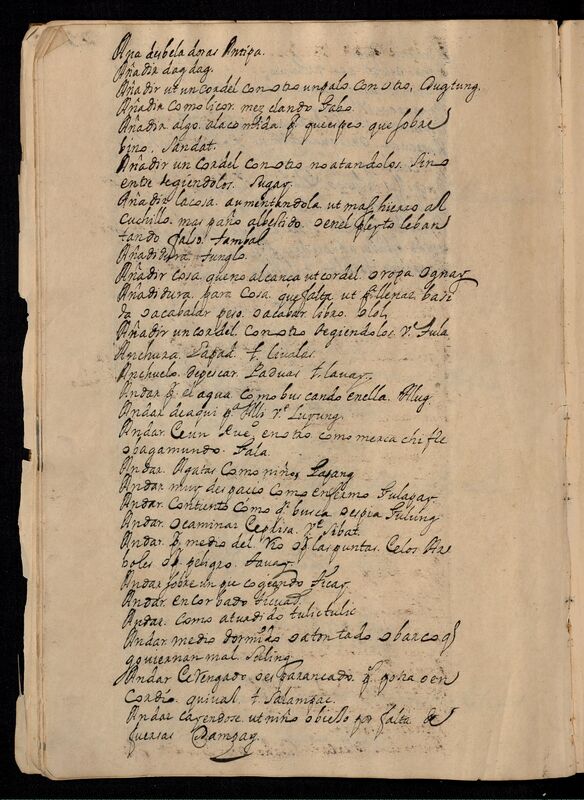 Ana desbeladoras Antipa.
Añadir dagdag.
Añadir ut un cordel con otro un palo con otro, Dugtung.
Añadir como licor. mezclando Sabo.
Añadir algo. a la comida. q̃ que que sobre
bino. Sandat.
Añadir un cordel con otro no atandolos. Sino
entretegiendolos. Sugay.
Añadir la cosa. aumentandola ut mas hierro al
cuchillo. mas paño al bestido. o en el pleyto leban
tando falso. tambal.
Añadidura. tunglo.
Añadir cosa que no alcança ut cordel. o ropa ognay
Añadidura. para cosa que falta ut
da o acabalar peso. o acabar libro. olol
Añadir un cordel. con otro tegiendolos. vᵉ Sula
Anchura. Lapad. t. liualas.
Anchuelo. de pescar. t. lauay.
Andar q̃ el agua como buscando en ella. Alug.
Andar de aqui pᵃ Alli vᵉ Luyung.
Andar. como merca chifle
o bagamundo. Gala.
Andar. Agatas como niño, Gapang
Andar muy despacio como enfermo Sulapay
Andar. Contiento como q̃ busca o espia
Andar. o caminar vᵉ Sibat.
Andar. q̃ medio del Rio o q̃ las puntas. Celos Ar
boles o q̃ peligro. tauay.
Andar sobre un cogeando ticay
Andar. encorbado ticuad
Andar. como aturdido tulictulic
Andar medio dormido o atontado o barco q̃
gouiernan mal. Suling
Andar o en
t. Salampac.
Andar cayendose ut niño o biejo por falta de
fuersas Dampay